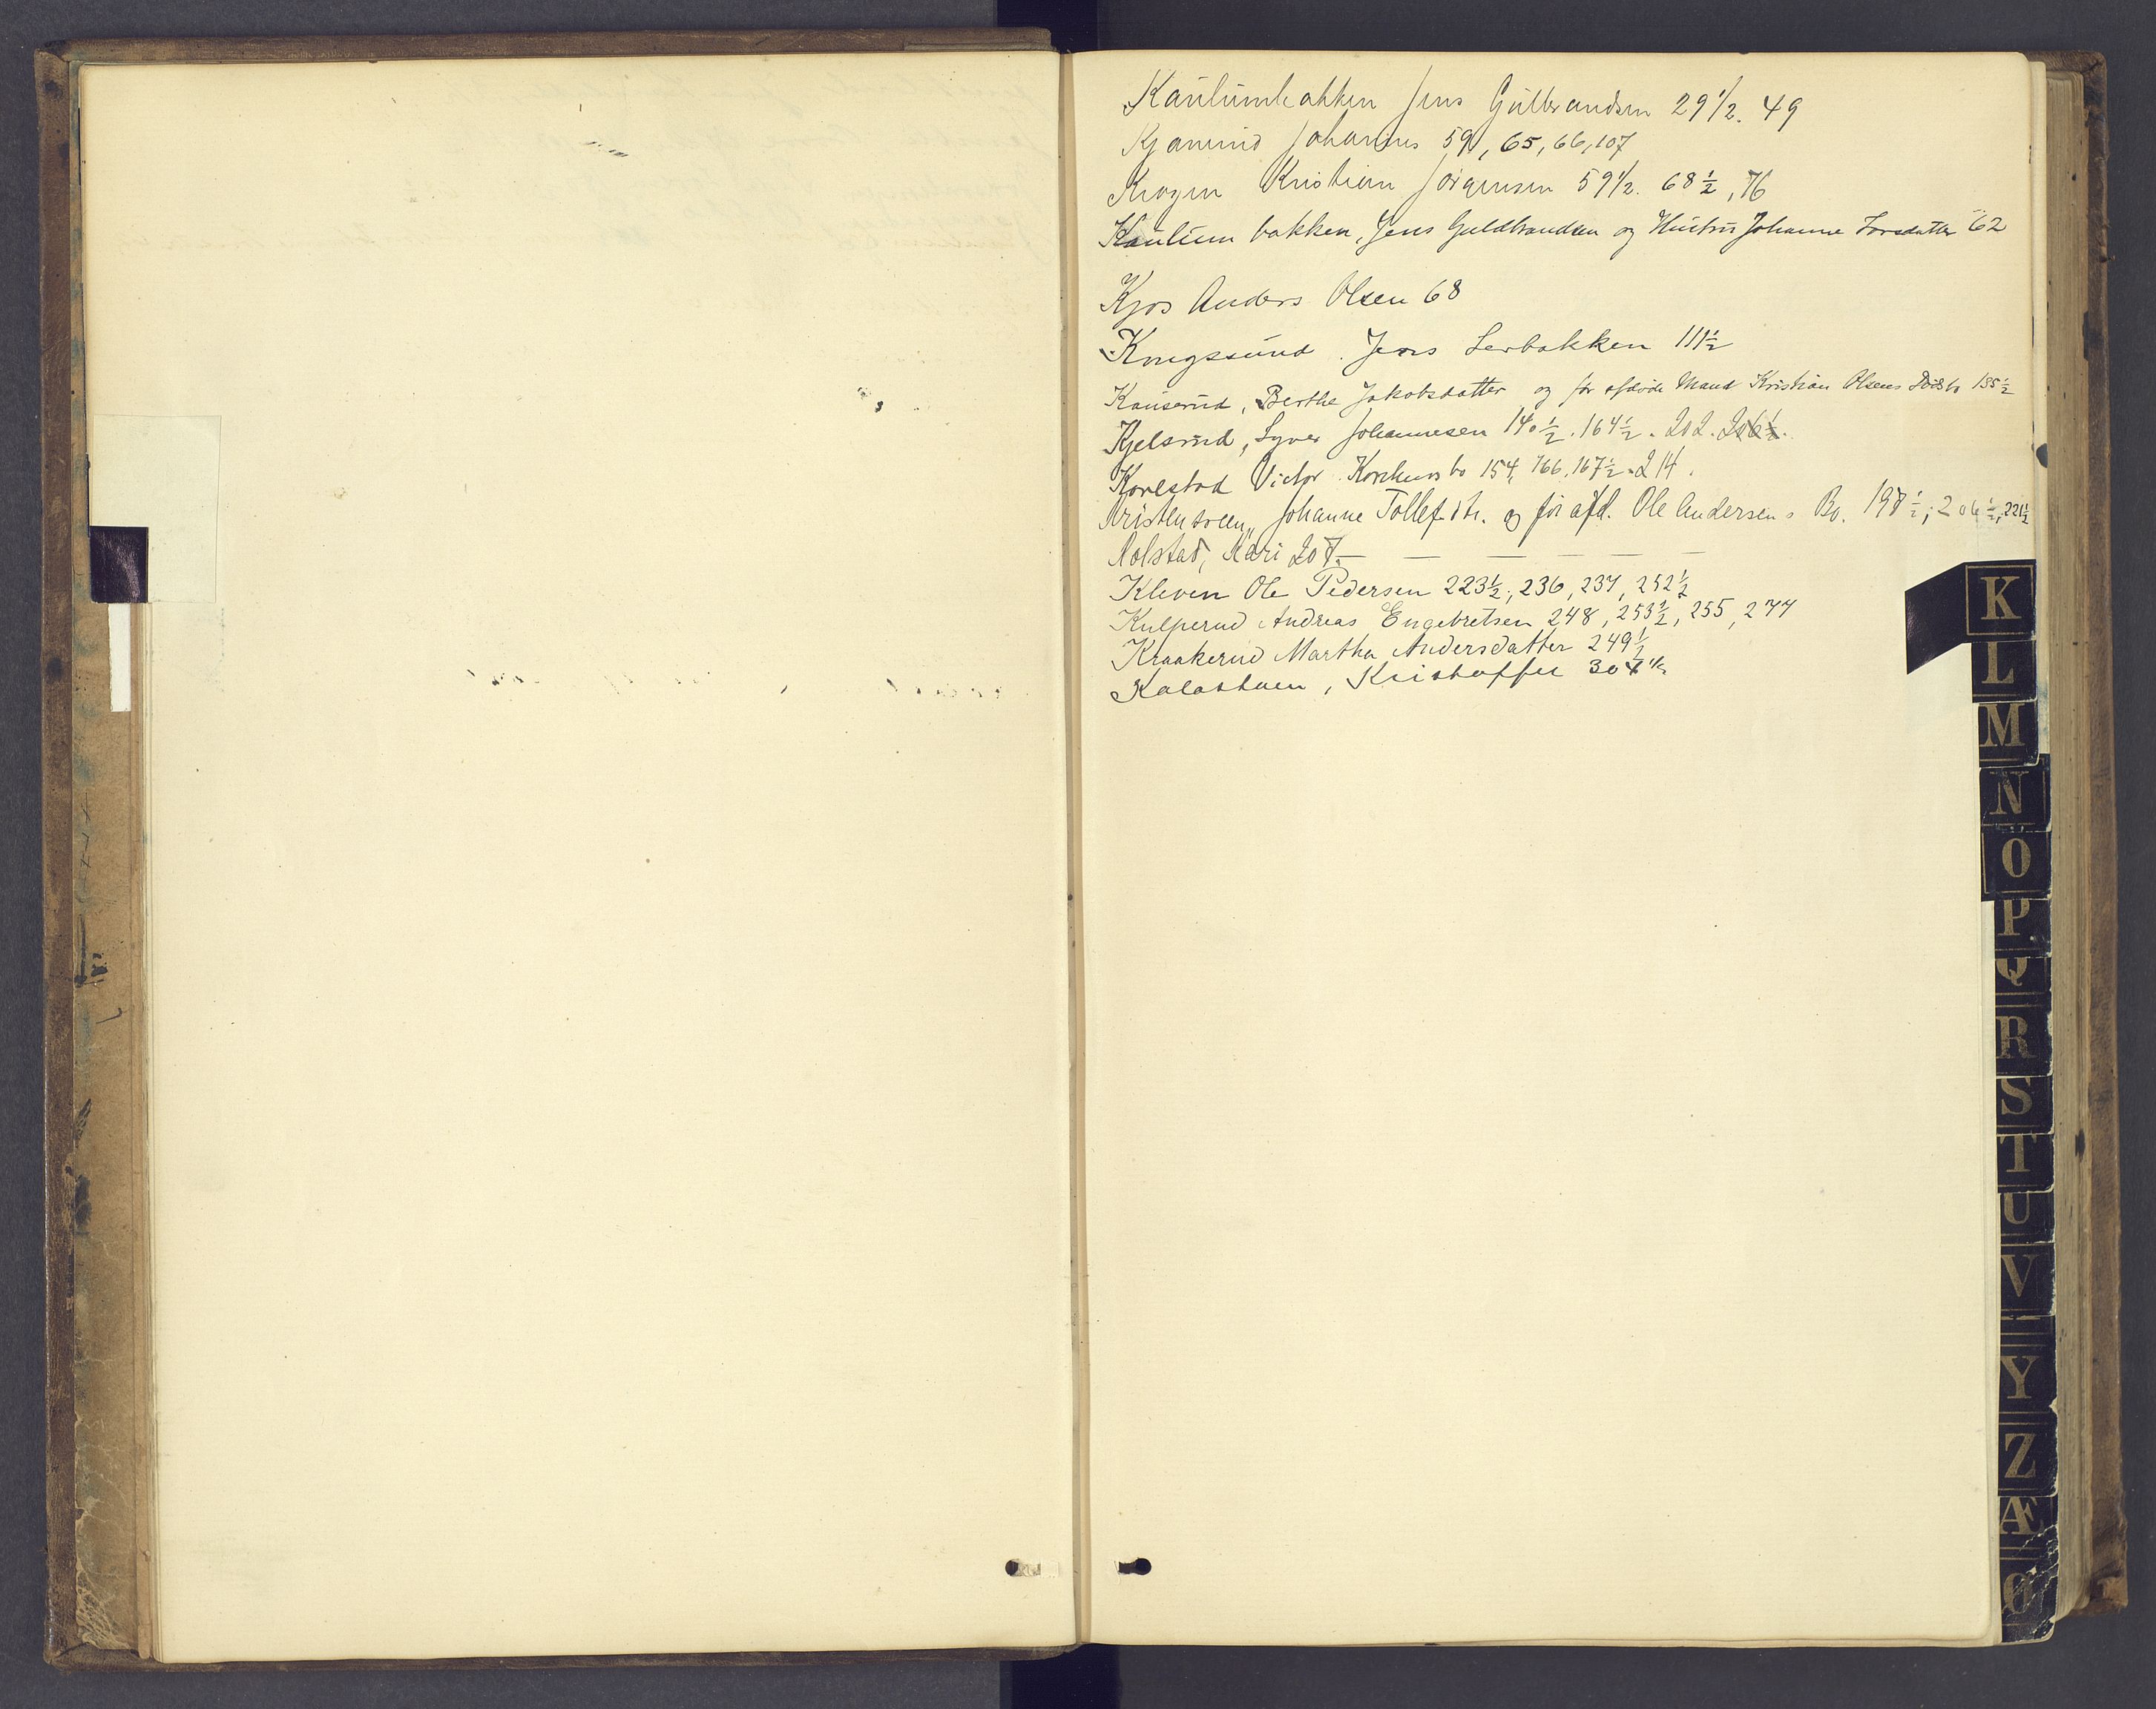 Kaulumbakken Jens Gulbrandsen 29 1/2. 49
Johannes 59, 65, 66, 107
Krogen Kristian Jørgensen 59 1/2. 68 1/2, 76
Kaulum bakken, Jens Guldbrandsen og Hustru Johanne Larsdatter 62
Kjos Anders Olsen 68
Kongssund. Jens Lerbakken 111 1/2
Kauserud, Berthe Jakobsdatter og for afdøde Mand Kristian Olsens Dødsbo 135 1/2
Kjelsrud, Syver Johannesen 140 1/2. 164 1/2. 202. 206 1/2.
Karlstad Victor Konkursbo 154, 166, 167 1/2. 214.
Johanne Tollefsdtr. og for afd. Ole Andersens Bo. 198 1/2; 206 1/2, 221 1/2
Kolstad, Kari 207. — — — — — —
Kleven Ole Pedersen 223 1/2, 236, 237, 252 1/2
Kulperud Andreas Engebretsen 248, 253 1/2, 255, 277
Kraakerud Martha Andersdatter 249 1/2
Kalastuen, Kristoffer 304 1/2
K
L
M
N
O
P
Q
R
S
T
U
V
Y
Z
Æ
Ø